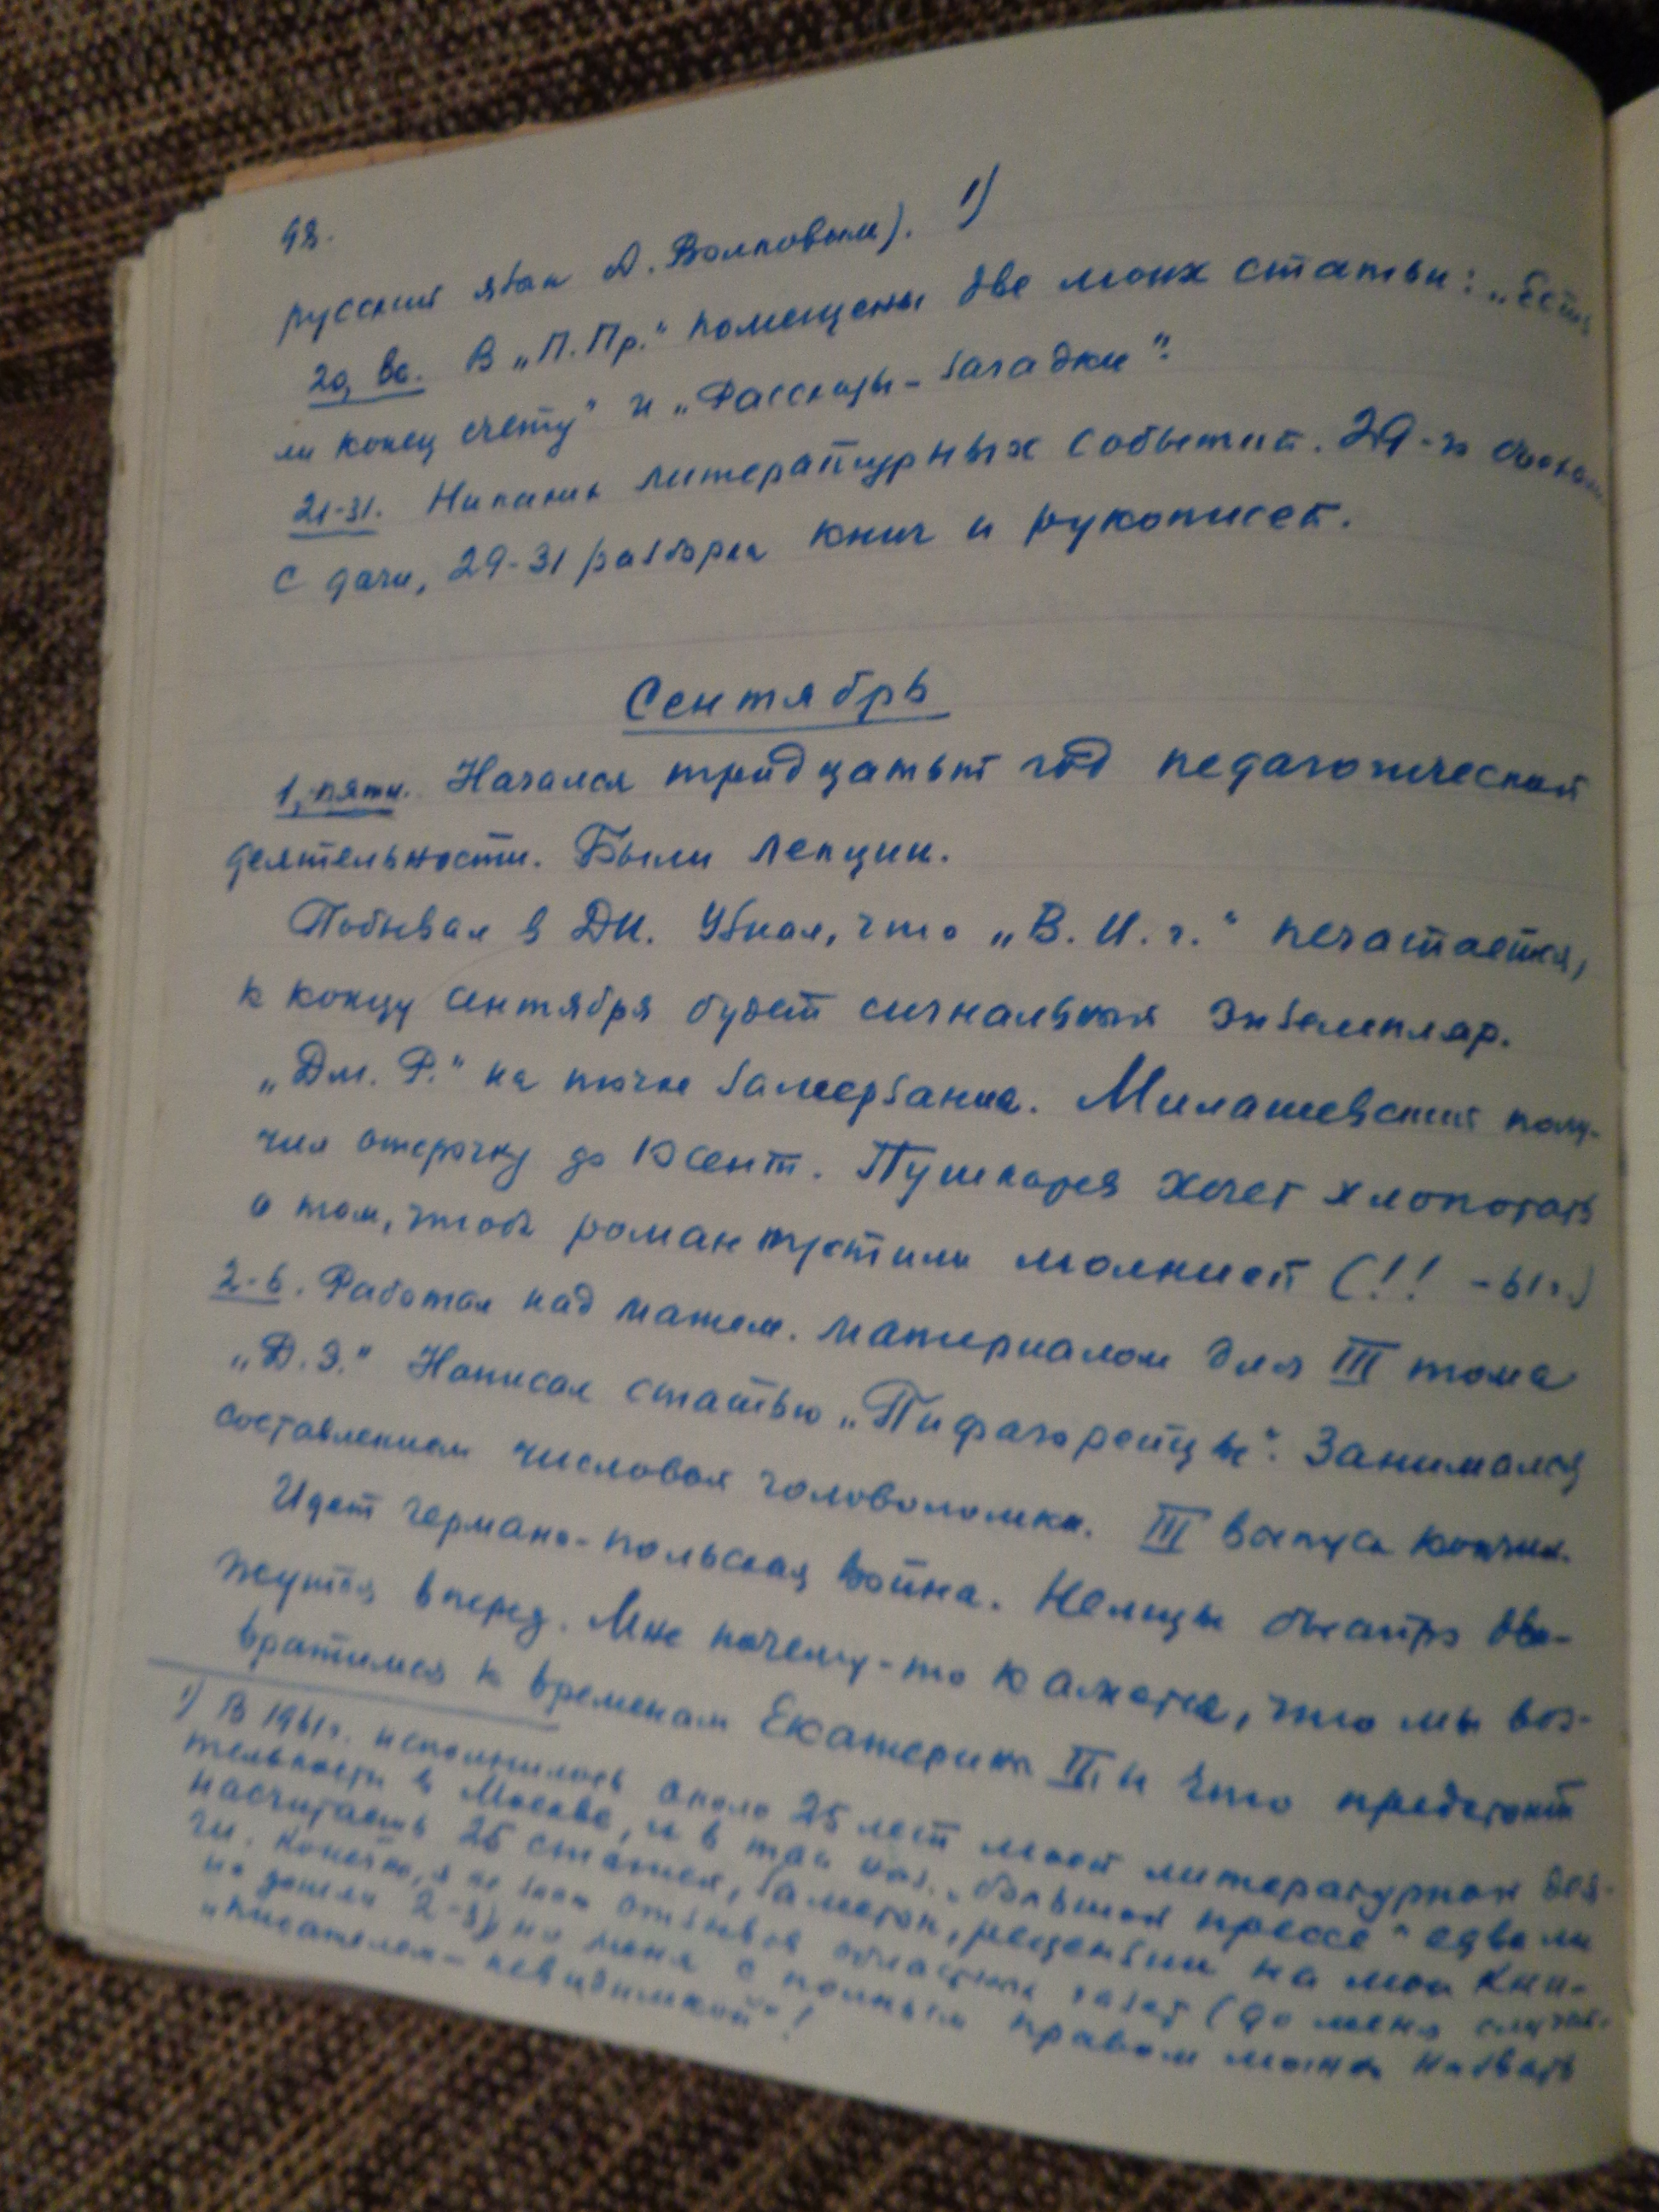 48.
русский язык А. Волковым). 1)
20, вс. В „П. Пр.“ помещены две моих статьи: „Есть
ли конец счету“ и „Рассказы-загадки“.
21-31. Никаких литературных событий. 29-го
с дачи, 29-31 разборка книг и рукописей.
Сентябрь
1, пятн. Начался тридцатый год педагогической
деятельности. Были лекции.
Побывал в ДИ. Узнал, что „В. И. г.“ печатается,
к концу сентября будет сигнальный экземпляр.
„Дм. Р.“ на точке замерзания. Милашевский полу-
чил отсрочку до 10 сент. Пушкарев хочет хлопотать
о том, чтоб роман пустили молнией (!! - 61 г.)
2-6. Работал над матем. материалом для III тома
„Д. Э.“ Написал статью „Пифагорейцы“. Занимался
составлением числовой головоломки. III выпуск кончил.
Идет германо-польская война. Немцы быстро дви-
жутся вперед. Мне почему-то кажется, что мы воз-
вратимся к временам Екатерины II, и что предстоит
1) В 1961 г. исполнилось около 25 лет моей литературной дея-
тельности в Москве, и в так наз. „большой прессе“ едва ли
насчитаешь 25 статей, заметок, рецензий на мои кни-
ги. Конечно, я не знаю отзывов областных газет (до меня случай-
но дошли 2-3), но меня с полным правом можно назвать
„писателем-невидимкой“!